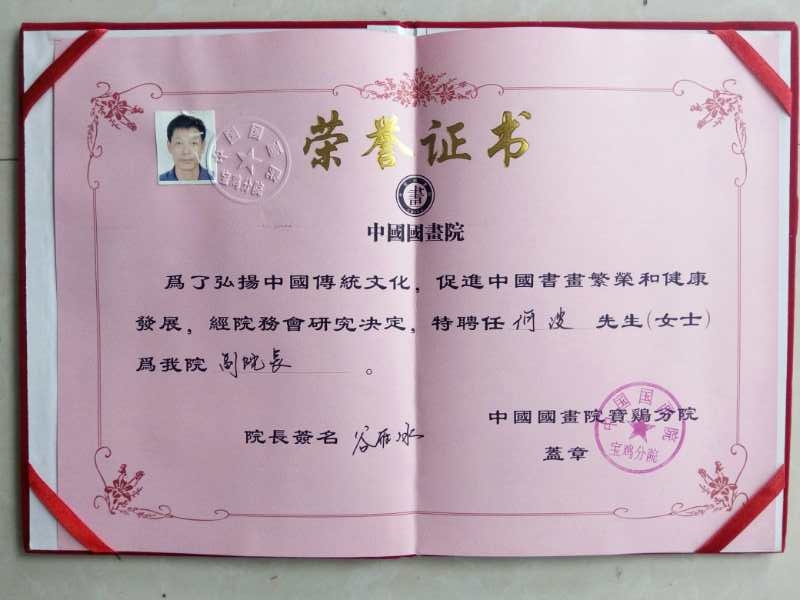 荣誉证书
書
中國國畫院
爲了弘揚中國傳統文化，促進中國書畫繁榮和健康
發展，經院務會研究决定，特聘任 何波 先生(女士)
爲我院 副院長 。
院長簽名 谷雁冰
中國國畫院寶鷄分院
蓋章
中国国畫院
宝鸡分院
中国国畫院
宝鸡分院